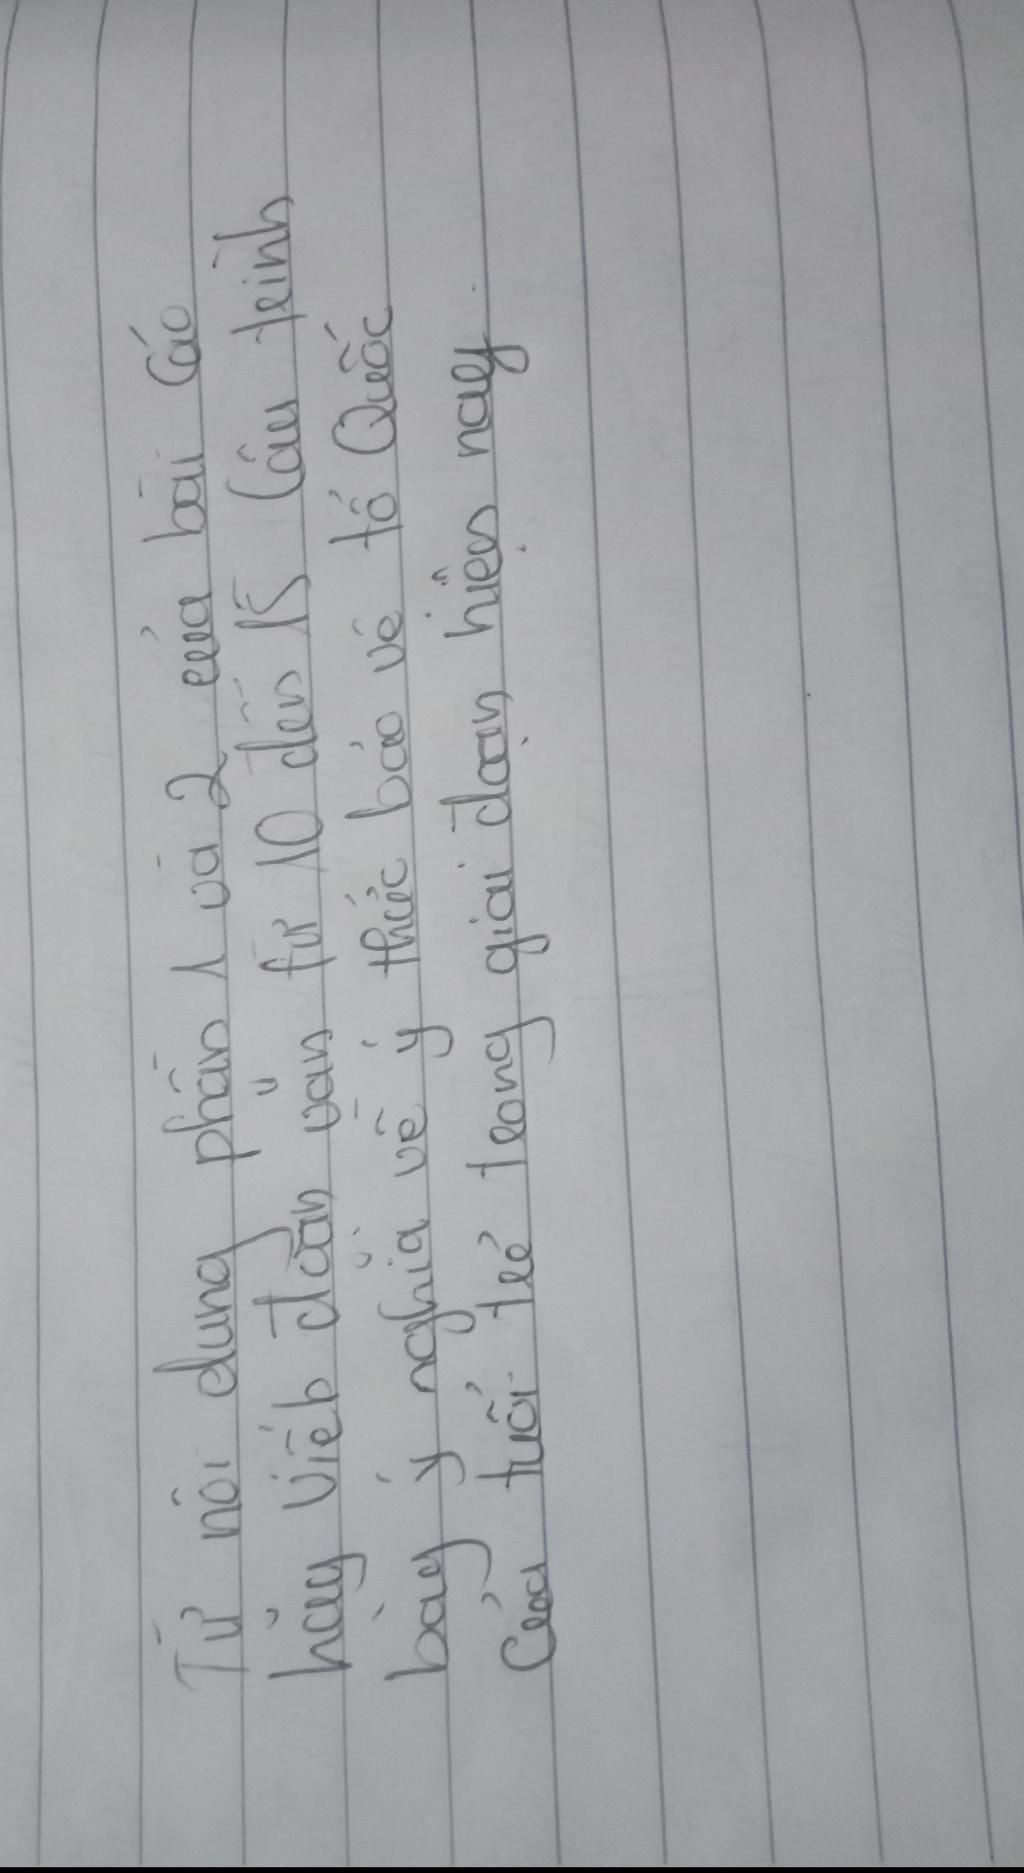 Từ nội dung phần 1 và 2 của bài Cáo
hãy viết đoạn văn từ 10 đến 15 câu trình
bày ý nghĩa về ý thức bảo vệ tổ Quốc
Của tuổi trẻ trong giai đoạn hiện nay.